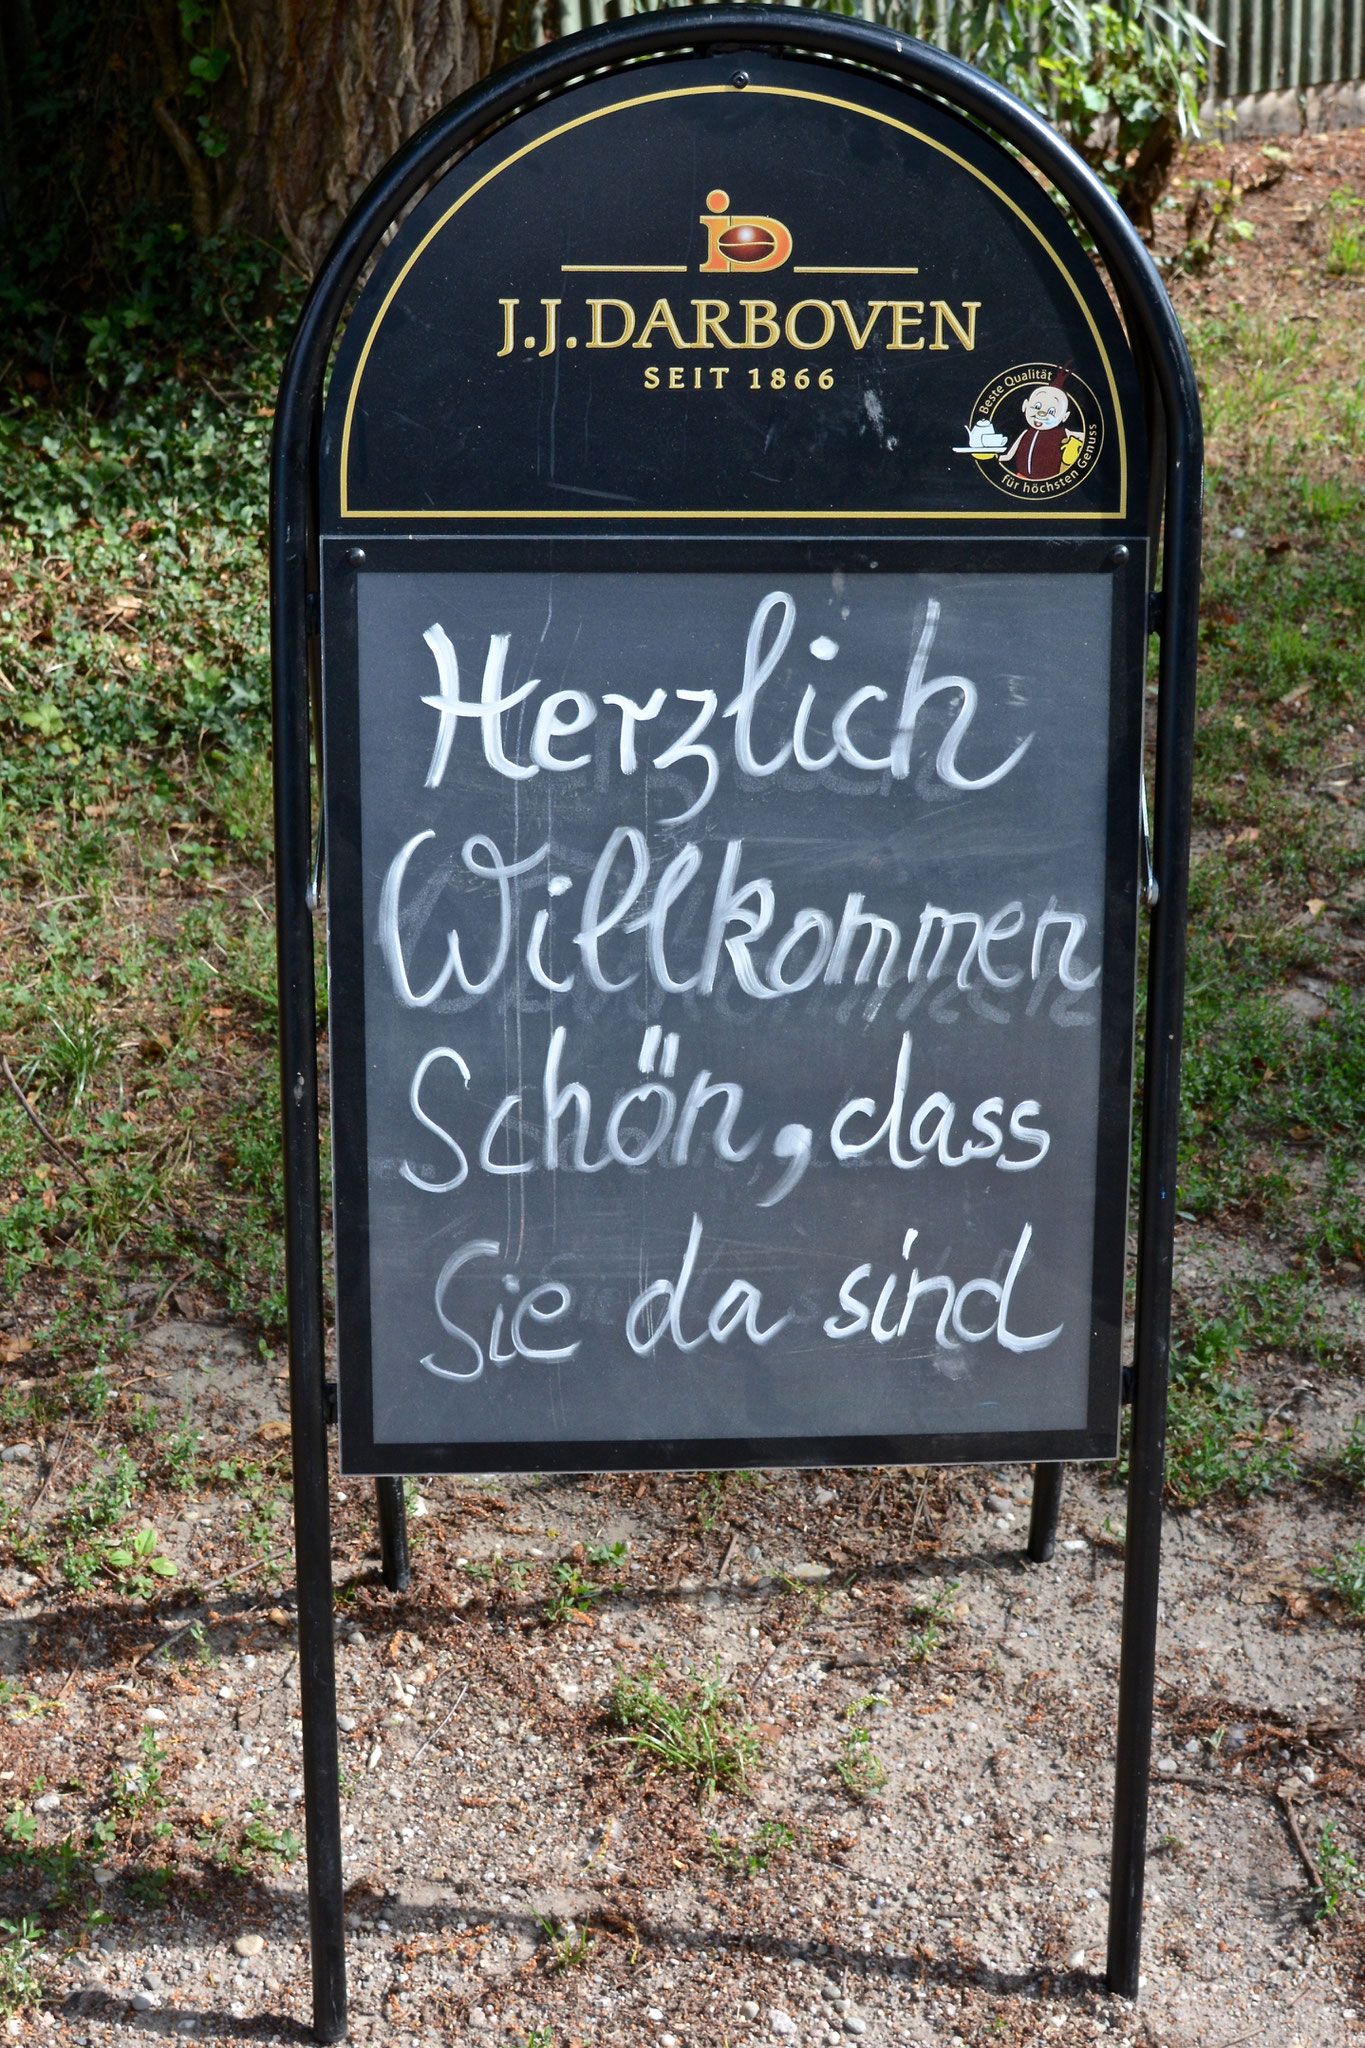 J.J.DARBOVEN
SEIT 1866
Beste Qualität
für höchsten Genuss
Herzlich
Willkommen
Schön, dass
Sie da sind